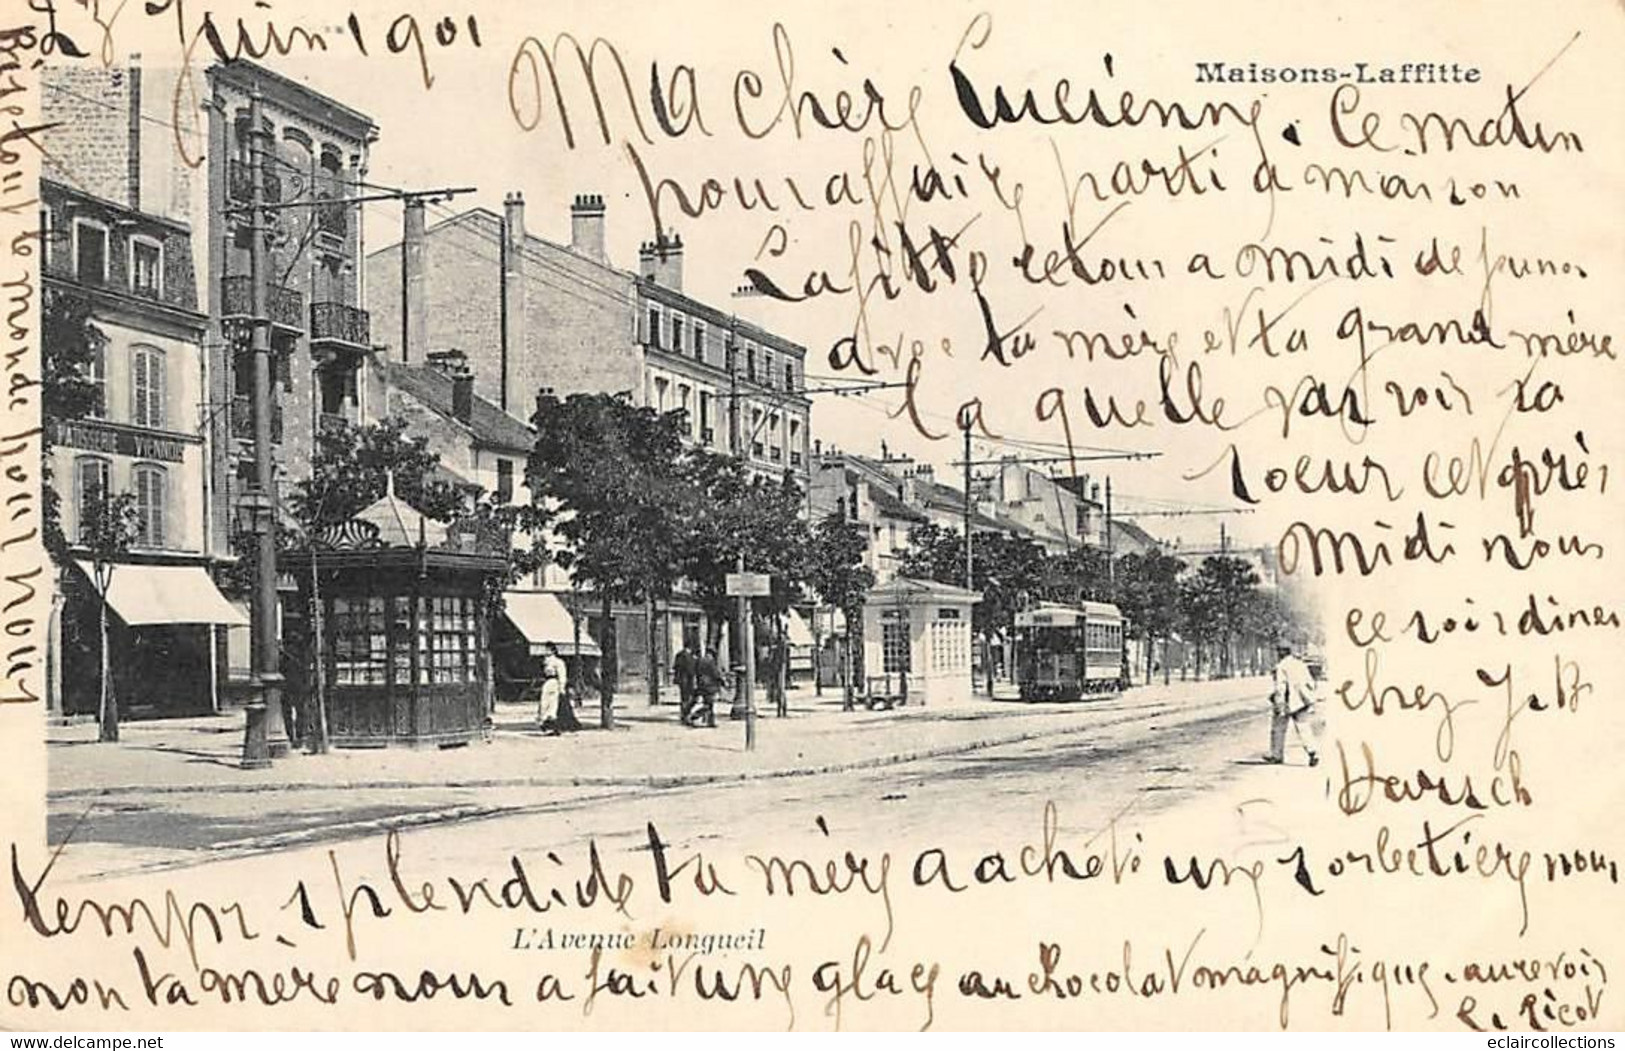 23 Juin 1901
Maisons-Laffitte
Ma chère Lucienne. Ce matin
pour affaire parti a maison
Lafitte retour a midi dejeuner
avec ta mère et ta grand mère
la quelle vas voir sa
soeur cet après
Midi nous
ce soir diner
chez J. B
Harsch
temps splendide ta mère a acheté une sorbetière nous
non ta mère nous a fait une glace au chocolat magnifique. au revoir
Ricot
Bise tout le monde pour nous
PATISSERIE VIENNOISE
L'Avenue Longueil
eclaircollections